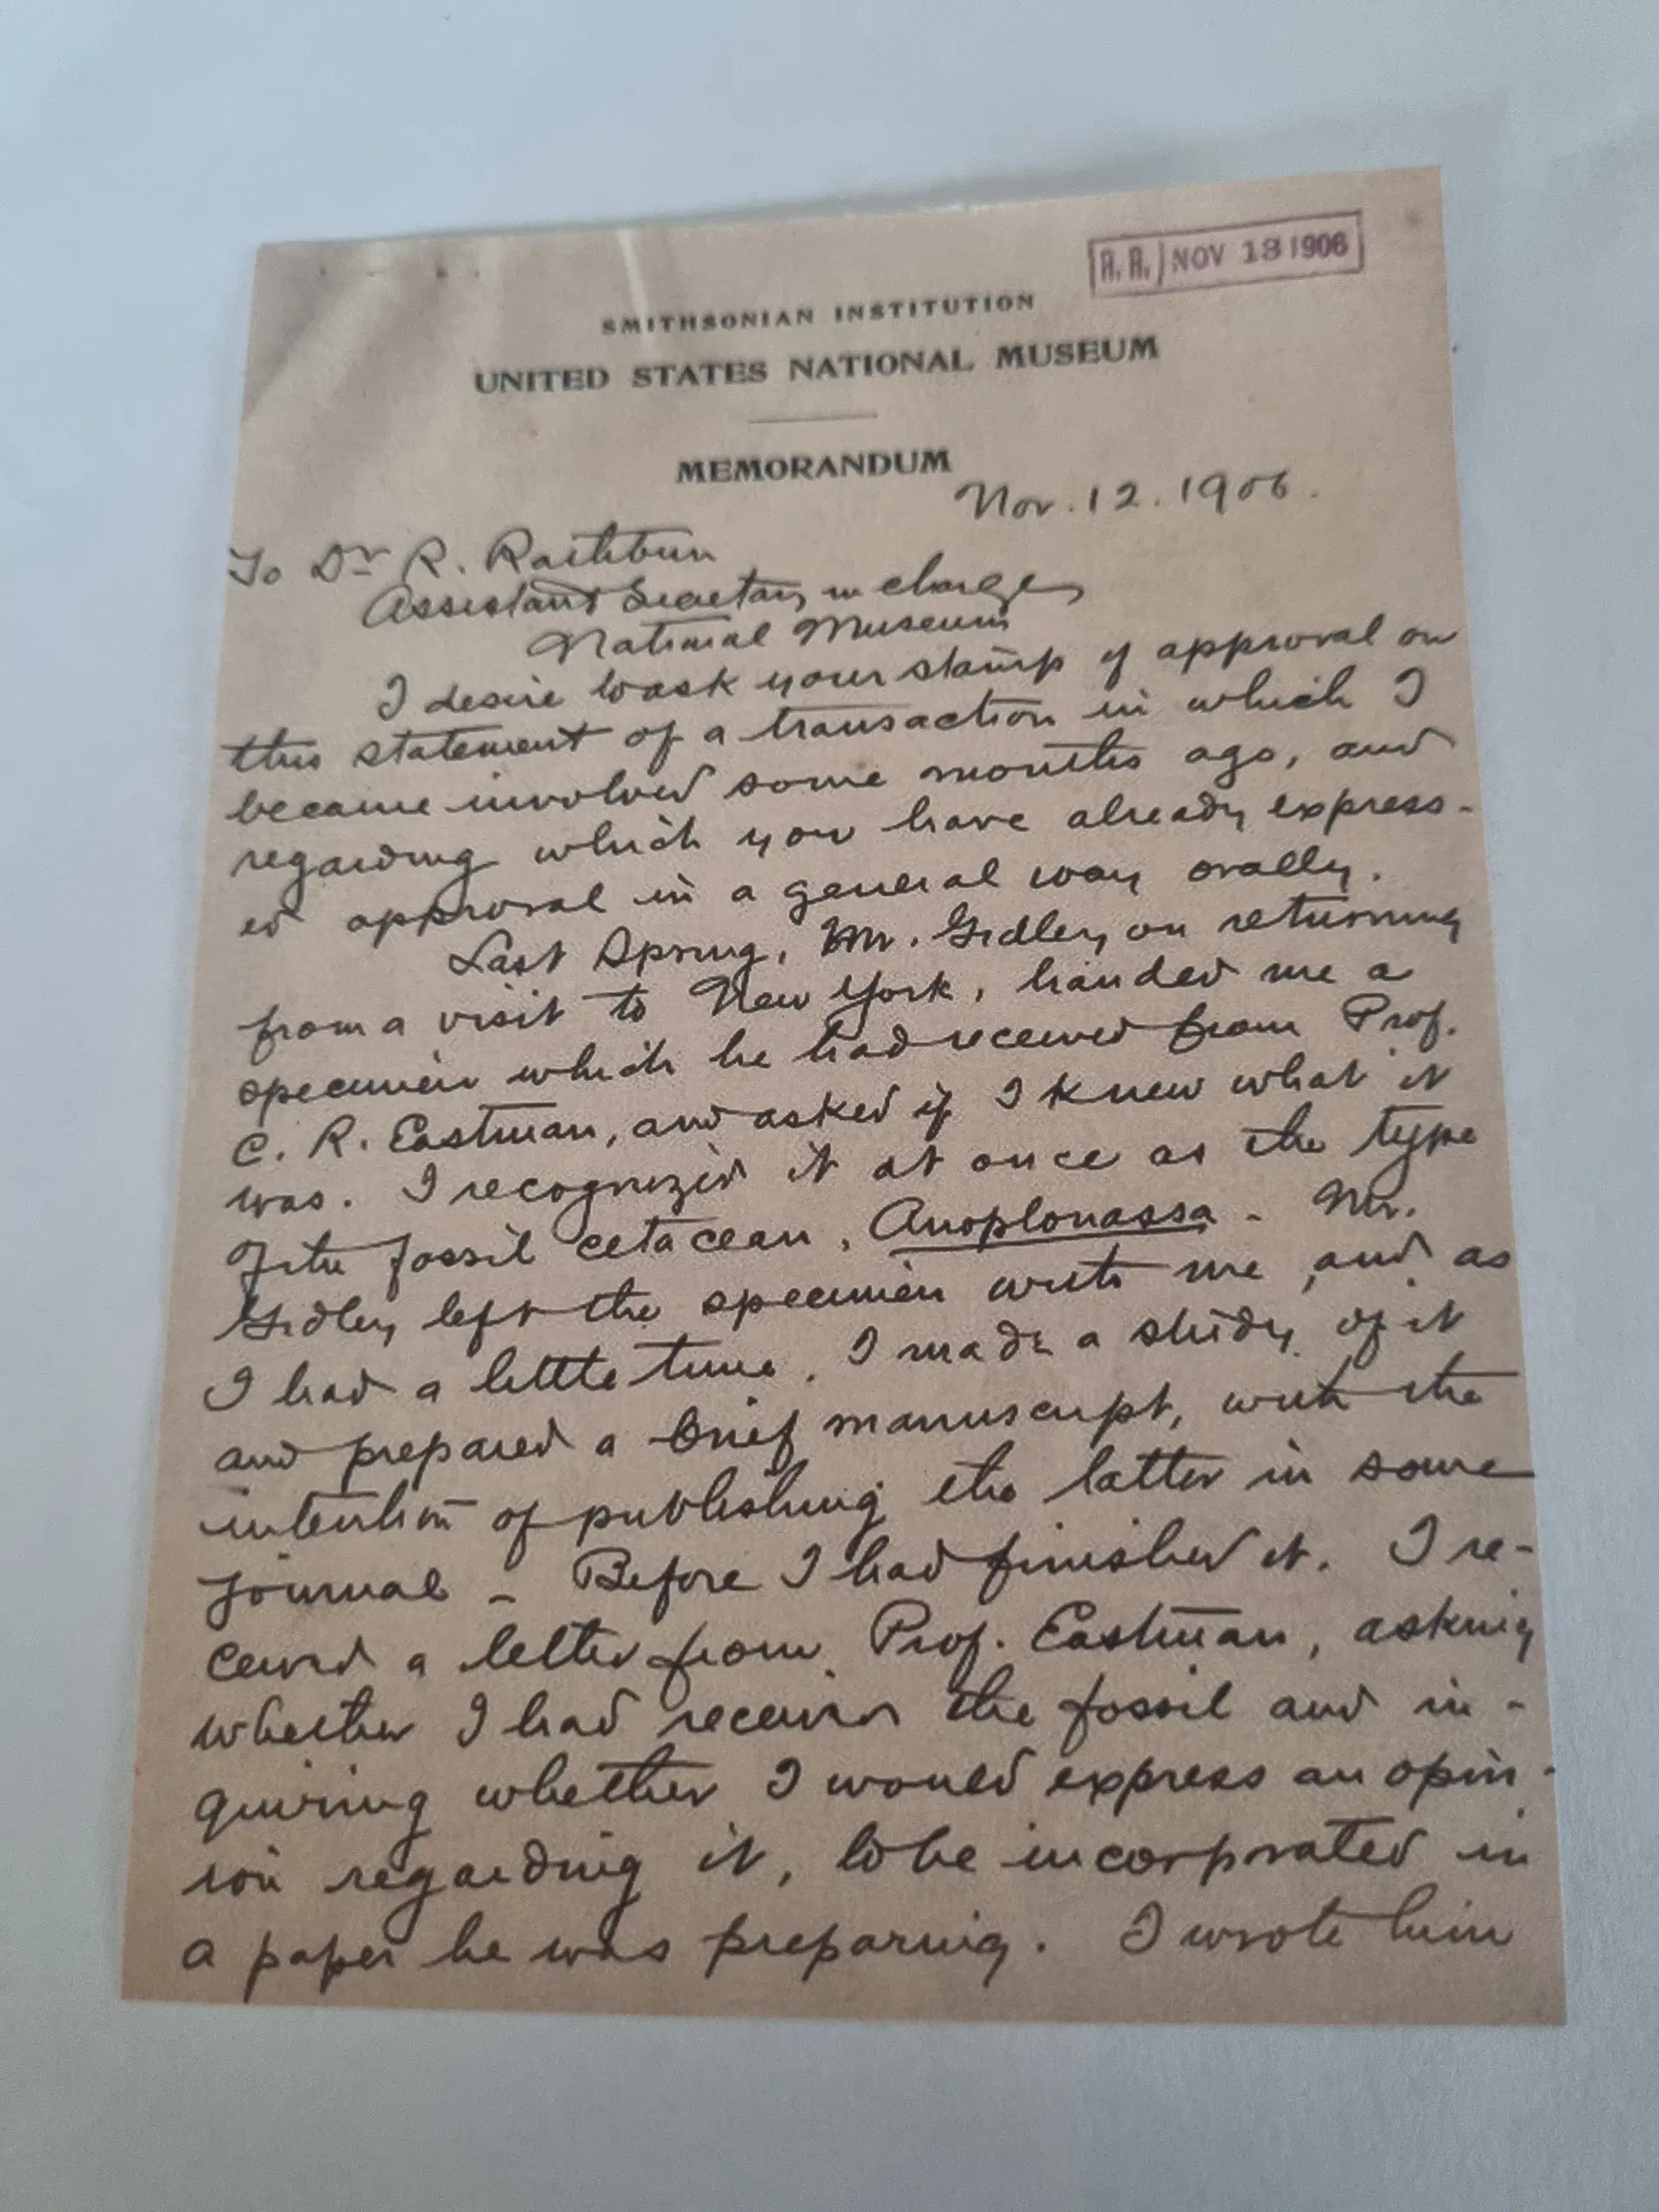 R. R. NOV 13 1906
SMITHSONIAN INSTITUTION
UNITED STATES NATIONAL MUSEUM
MEMORANDUM
Nov. 12. 1906.
To Dr R. Rathbun
Assistant Secretary in charge
National Museum
I desire to ask your stamp of approval on
this statement of a transaction in which I
became involved some months ago, and
regarding which you have already express-
ed approval in a general way orally.
Last Spring, Mr. Gidley, on returning
from a visit to New York, handed me a
specimen which he had received from Prof.
C. R. Eastman, and asked if I knew what it
was. I recognized it at once as the type
of the fossil cetacean, Anoplonassa - Mr.
Gidley left the specimen with me, and as
I had a little time, I made a study of it
and prepared a brief manuscript, with the
intention of publishing the latter in some
journal - Before I had finished it, I re-
ceived a letter from Prof. Eastman, asking
whether I had received the fossil and in-
quiring whether I would express an opin-
ion regarding it, to be incorporated in
a paper he was preparing. I wrote him